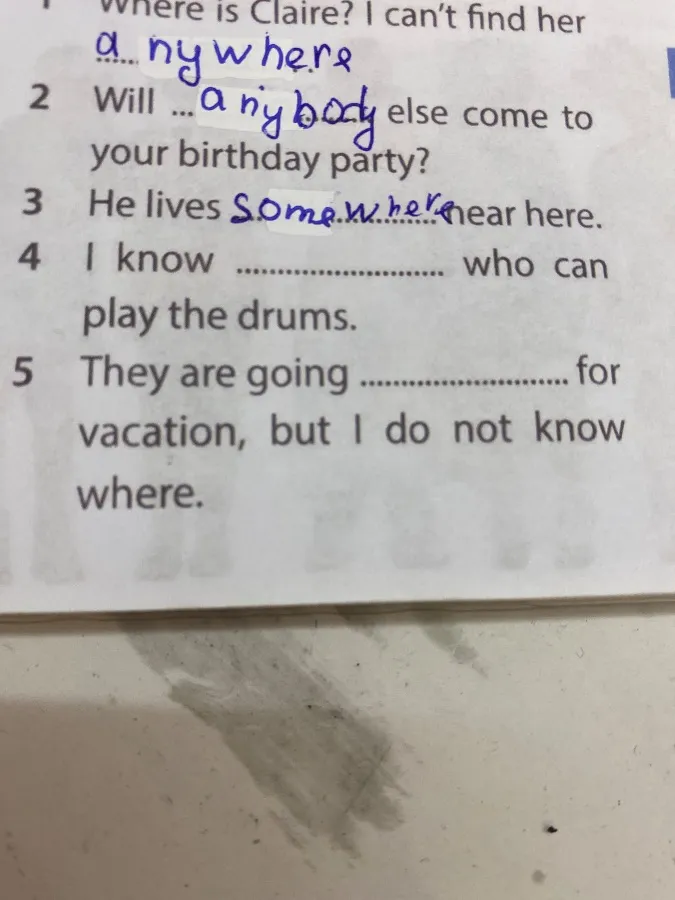 1 Where is Claire? I can't find her
anywhere
2 Will ...anybody else come to
your birthday party?
3 He lives somewhere near here.
4 I know .......................... who can
play the drums.
5 They are going .......................... for
vacation, but I do not know
where.